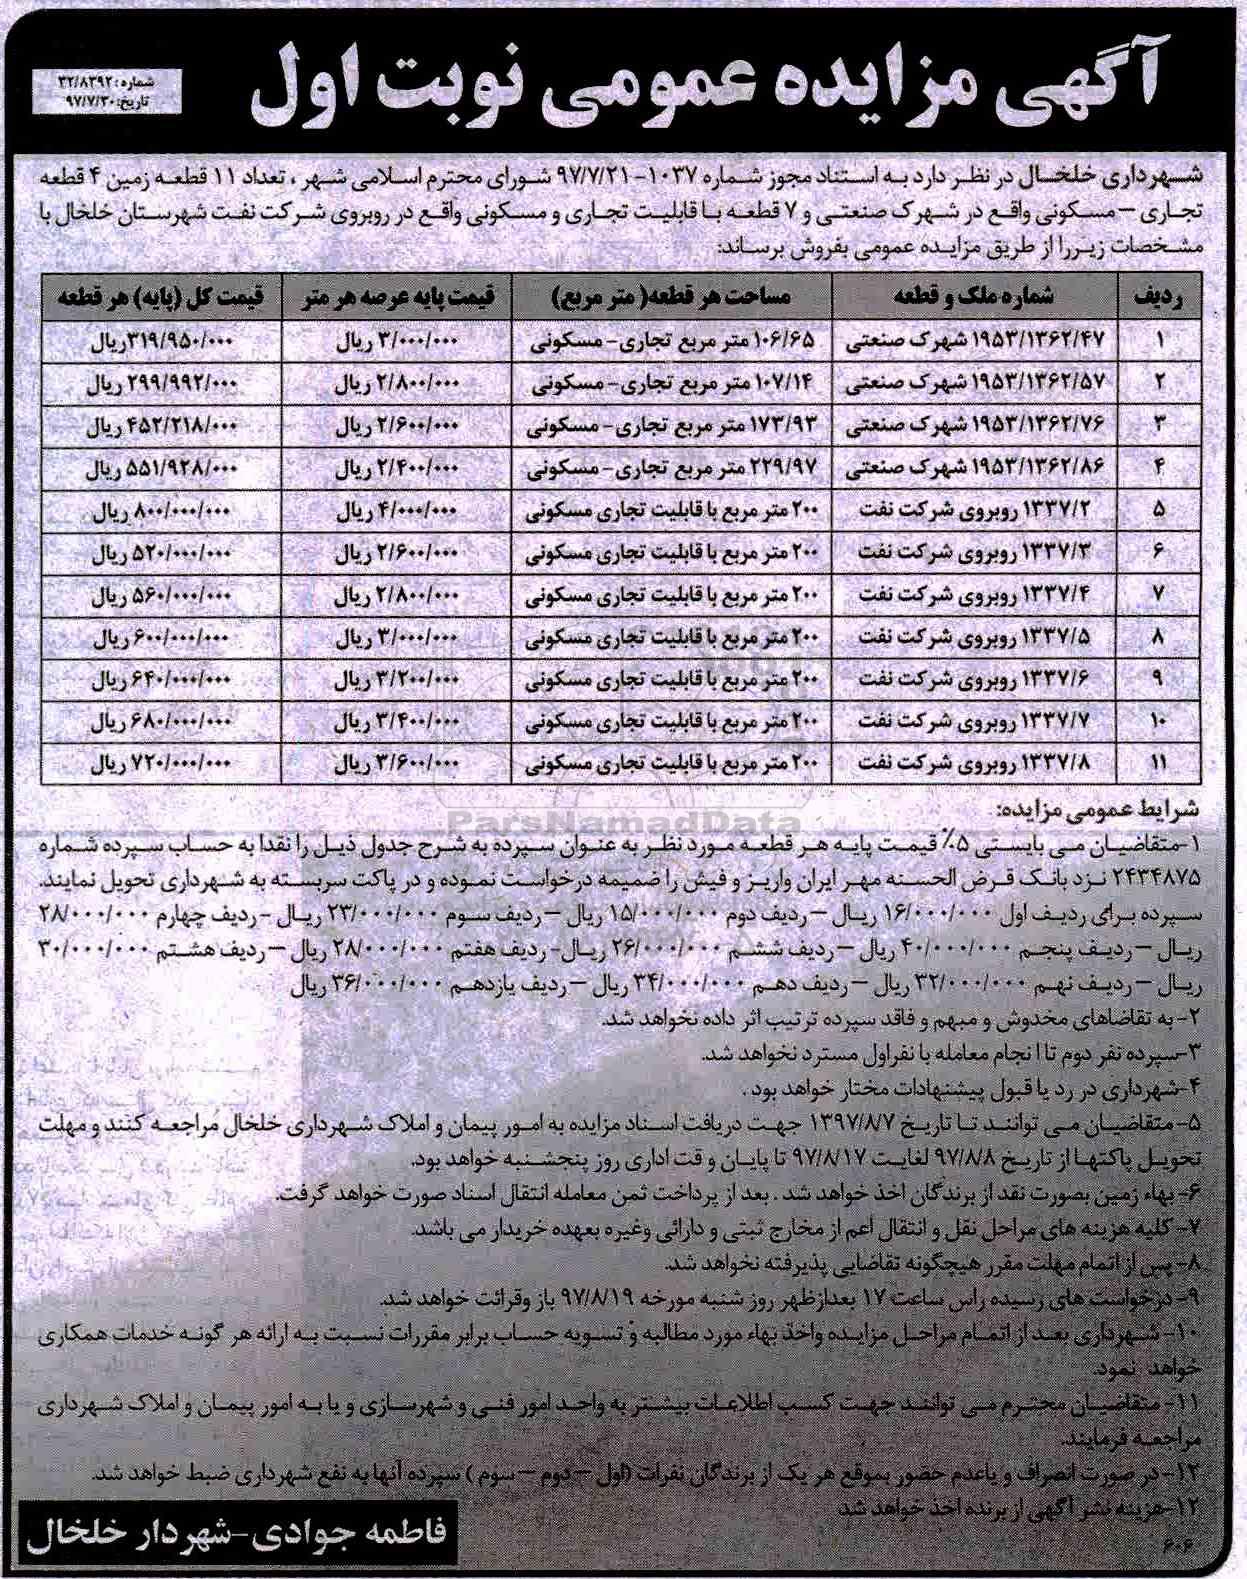 آگهی مزایده عمومی نوبت اول
شماره: ۳۲/۸۳۹۲
تاریخ: ۹۷/۷/۳۰
شهرداری خلخال در نظر دارد به استناد مجوز شماره ۱۰۳۷-۹۷/۷/۲۱ شورای محترم اسلامی شهر، تعداد ۱۱ قطعه زمین ۴ قطعه
تجاری – مسکونی واقع در شهرک صنعتی و ۷ قطعه با قابلیت تجاری و مسکونی واقع در روبروی شرکت نفت شهرستان خلخال با
مشخصات زیر را از طریق مزایده عمومی بفروش برساند:
ردیف شماره ملک و قطعه مساحت هر قطعه( متر مربع) قیمت پایه عرصه هر متر قیمت کل (پایه) هر قطعه
۱ ۱۹۵۳/۱۳۶۲/۴۷ شهرک صنعتی ۱۰۶/۶۵ متر مربع تجاری- مسکونی ۳/۰۰۰/۰۰۰ ریال ۳۱۹/۹۵۰/۰۰۰ ریال
۲ ۱۹۵۳/۱۳۶۲/۵۷ شهرک صنعتی ۱۰۷/۱۴ متر مربع تجاری- مسکونی ۲/۸۰۰/۰۰۰ ریال ۲۹۹/۹۹۲/۰۰۰ ریال
۳ ۱۹۵۳/۱۳۶۲/۷۶ شهرک صنعتی ۱۷۳/۹۳ متر مربع تجاری- مسکونی ۲/۶۰۰/۰۰۰ ریال ۴۵۲/۲۱۸/۰۰۰ ریال
۴ ۱۹۵۳/۱۳۶۲/۸۶ شهرک صنعتی ۲۲۹/۹۷ متر مربع تجاری- مسکونی ۲/۴۰۰/۰۰۰ ریال ۵۵۱/۹۲۸/۰۰۰ ریال
۵ ۱۳۳۷/۲ روبروی شرکت نفت ۲۰۰ متر مربع با قابلیت تجاری مسکونی ۴/۰۰۰/۰۰۰ ریال ۸۰۰/۰۰۰/۰۰۰ ریال
۶ ۱۳۳۷/۳ روبروی شرکت نفت ۲۰۰ متر مربع با قابلیت تجاری مسکونی ۲/۶۰۰/۰۰۰ ریال ۵۲۰/۰۰۰/۰۰۰ ریال
۷ ۱۳۳۷/۴ روبروی شرکت نفت ۲۰۰ متر مربع با قابلیت تجاری مسکونی ۲/۸۰۰/۰۰۰ ریال ۵۶۰/۰۰۰/۰۰۰ ریال
۸ ۱۳۳۷/۵ روبروی شرکت نفت ۲۰۰ متر مربع با قابلیت تجاری مسکونی ۳/۰۰۰/۰۰۰ ریال ۶۰۰/۰۰۰/۰۰۰ ریال
۹ ۱۳۳۷/۶ روبروی شرکت نفت ۲۰۰ متر مربع با قابلیت تجاری مسکونی ۳/۲۰۰/۰۰۰ ریال ۶۴۰/۰۰۰/۰۰۰ ریال
۱۰ ۱۳۳۷/۷ روبروی شرکت نفت ۲۰۰ متر مربع با قابلیت تجاری مسکونی ۳/۴۰۰/۰۰۰ ریال ۶۸۰/۰۰۰/۰۰۰ ریال
۱۱ ۱۳۳۷/۸ روبروی شرکت نفت ۲۰۰ متر مربع با قابلیت تجاری مسکونی ۳/۶۰۰/۰۰۰ ریال ۷۲۰/۰۰۰/۰۰۰ ریال
شرایط عمومی مزایده:
ParsNamadData
۱-متقاضیان می بایستی ۵٪ قیمت پایه هر قطعه مورد نظر به عنوان سپرده به شرح جدول ذیل را نقدا به حساب سپرده شماره
۲۴۳۴۸۷۵ نزد بانک قرض الحسنه مهر ایران واریز و فیش را ضمیمه درخواست نموده و در پاکت سربسته به شهرداری تحویل نمایند.
سپرده برای ردیف اول ۱۶/۰۰۰/۰۰۰ ریال – ردیف دوم ۱۵/۰۰۰/۰۰۰ ریال – ردیف سوم ۲۳/۰۰۰/۰۰۰ ریال -ردیف چهارم ۲۸/۰۰۰/۰۰۰
ریال – ردیف پنجم ۴۰/۰۰۰/۰۰۰ ریال – ردیف ششم ۲۶/۰۰۰/۰۰۰ ریال- ردیف هفتم ۲۸/۰۰۰/۰۰۰ ریال – ردیف هشتم ۳۰/۰۰۰/۰۰۰
ریال – ردیف نهم ۳۲/۰۰۰/۰۰۰ ریال – ردیف دهم ۳۴/۰۰۰/۰۰۰ ریال – ردیف یازدهم ۳۶/۰۰۰/۰۰۰ ریال
۲- به تقاضاهای مخدوش و مبهم و فاقد سپرده ترتیب اثر داده نخواهد شد.
۳-سپرده نفر دوم تا انجام معامله با نفر اول مسترد نخواهد شد.
۴-شهرداری در رد یا قبول پیشنهادات مختار خواهد بود .
۵- متقاضیان می توانند تا تاریخ ۱۳۹۷/۸/۷ جهت دریافت اسناد مزایده به امور پیمان و املاک شهرداری خلخال مراجعه کنند و مهلت
تحویل پاکتها از تاریخ ۹۷/۸/۸ لغایت ۹۷/۸/۱۷ تا پایان وقت اداری روز پنجشنبه خواهد بود.
۶- بهاء زمین بصورت نقد از برندگان اخذ خواهد شد . بعد از پرداخت ثمن معامله انتقال اسناد صورت خواهد گرفت.
۷- کلیه هزینه های مراحل نقل و انتقال اعم از مخارج ثبتی و دارائی وغیره بعهده خریدار می باشد.
۸- پس از اتمام مهلت مقرر هیچگونه تقاضایی پذیرفته نخواهد شد.
۹- درخواست های رسیده راس ساعت ۱۷ بعدازظهر روز شنبه مورخه ۹۷/۸/۱۹ باز وقرائت خواهد شد.
۱۰- شهرداری بعد از اتمام مراحل مزایده واخذ بهاء مورد مطالبه و تسویه حساب برابر مقررات نسبت به ارائه هر گونه خدمات همکاری
خواهد نمود.
۱۱- متقاضیان محترم می توانند جهت کسب اطلاعات بیشتر به واحد امور فنی و شهرسازی و یا به امور پیمان و املاک شهرداری
مراجعه فرمایند.
۱۲- در صورت انصراف و یاعدم حضور بموقع هر یک از برندگان نفرات (اول – دوم – سوم ) سپرده آنها به نفع شهرداری ضبط خواهد شد.
۱۲-هزینه نشر آگهی از برنده اخذ خواهد شد
۶۰۶
فاطمه جوادی-شهردار خلخال